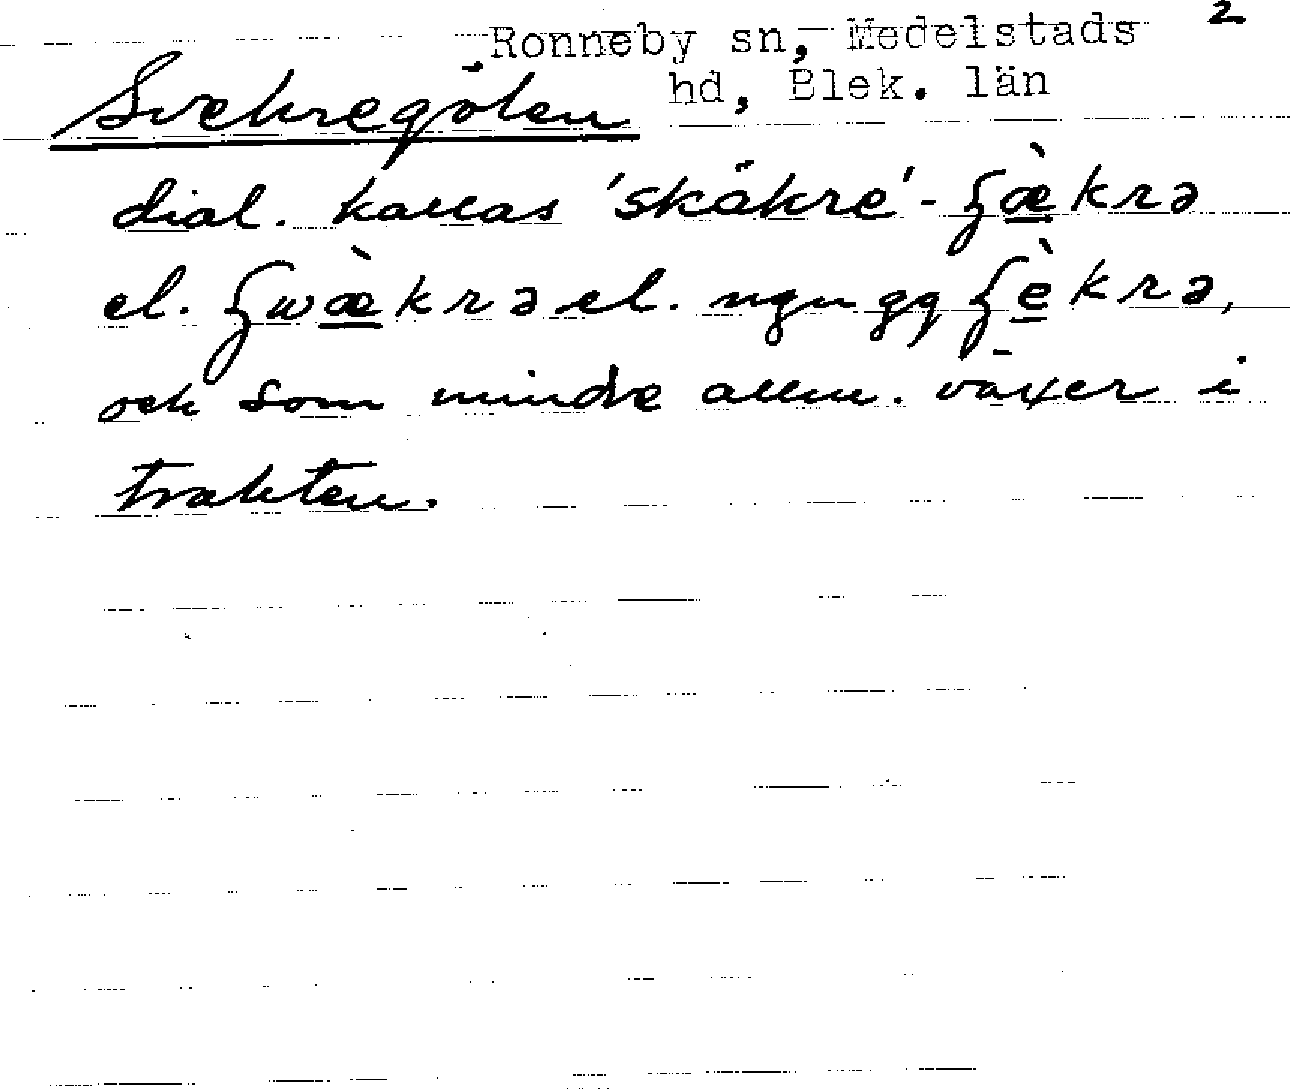 Ronneby sn, Medelstads 2
Svekregölen hd, Blek. län
dial. kallas 'skäkre' - ʂæ̀krə
el. ʂwæ̀krə el. ngn gg ʂèkrə,
och som mindre allm. växer i
trakten.